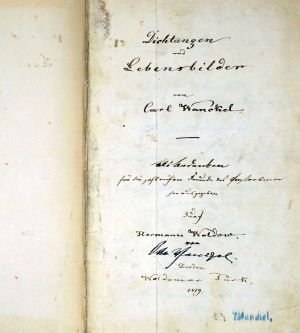 Dichtungen
und
Lebensbilder
von
Carl Wanckel.
Als Andenken
für die zahlreichen Freunde des Verstorbenen
herausgegeben
durch
Hermann Waldow.
von
Otto
Dresden
Woldemar Türk.